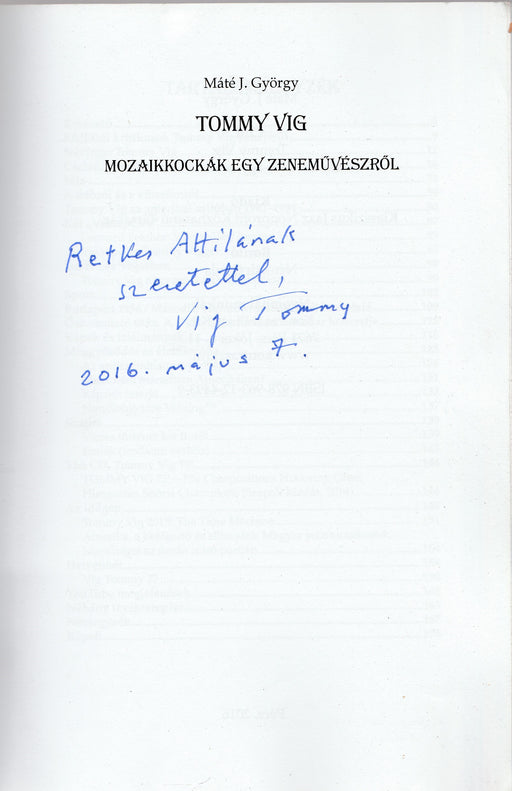 Máté J. György
TOMMY VIG
MOZAIKKOCKÁK EGY ZENEMŰVÉSZRŐL
Retkes Attilának
szeretettel,
Vig Tommy
2016. május 7.